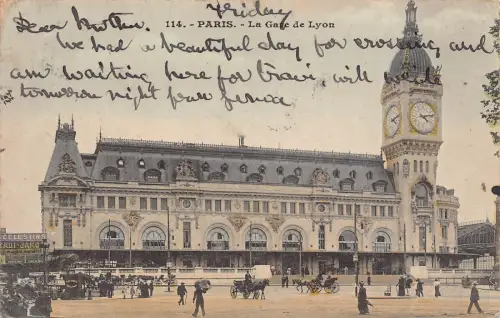 Friday
114. - PARIS. - La Gare de Lyon
Dear Mother
We had a beautiful day for crossing, and
am waiting here for train, will
tomorrow night from